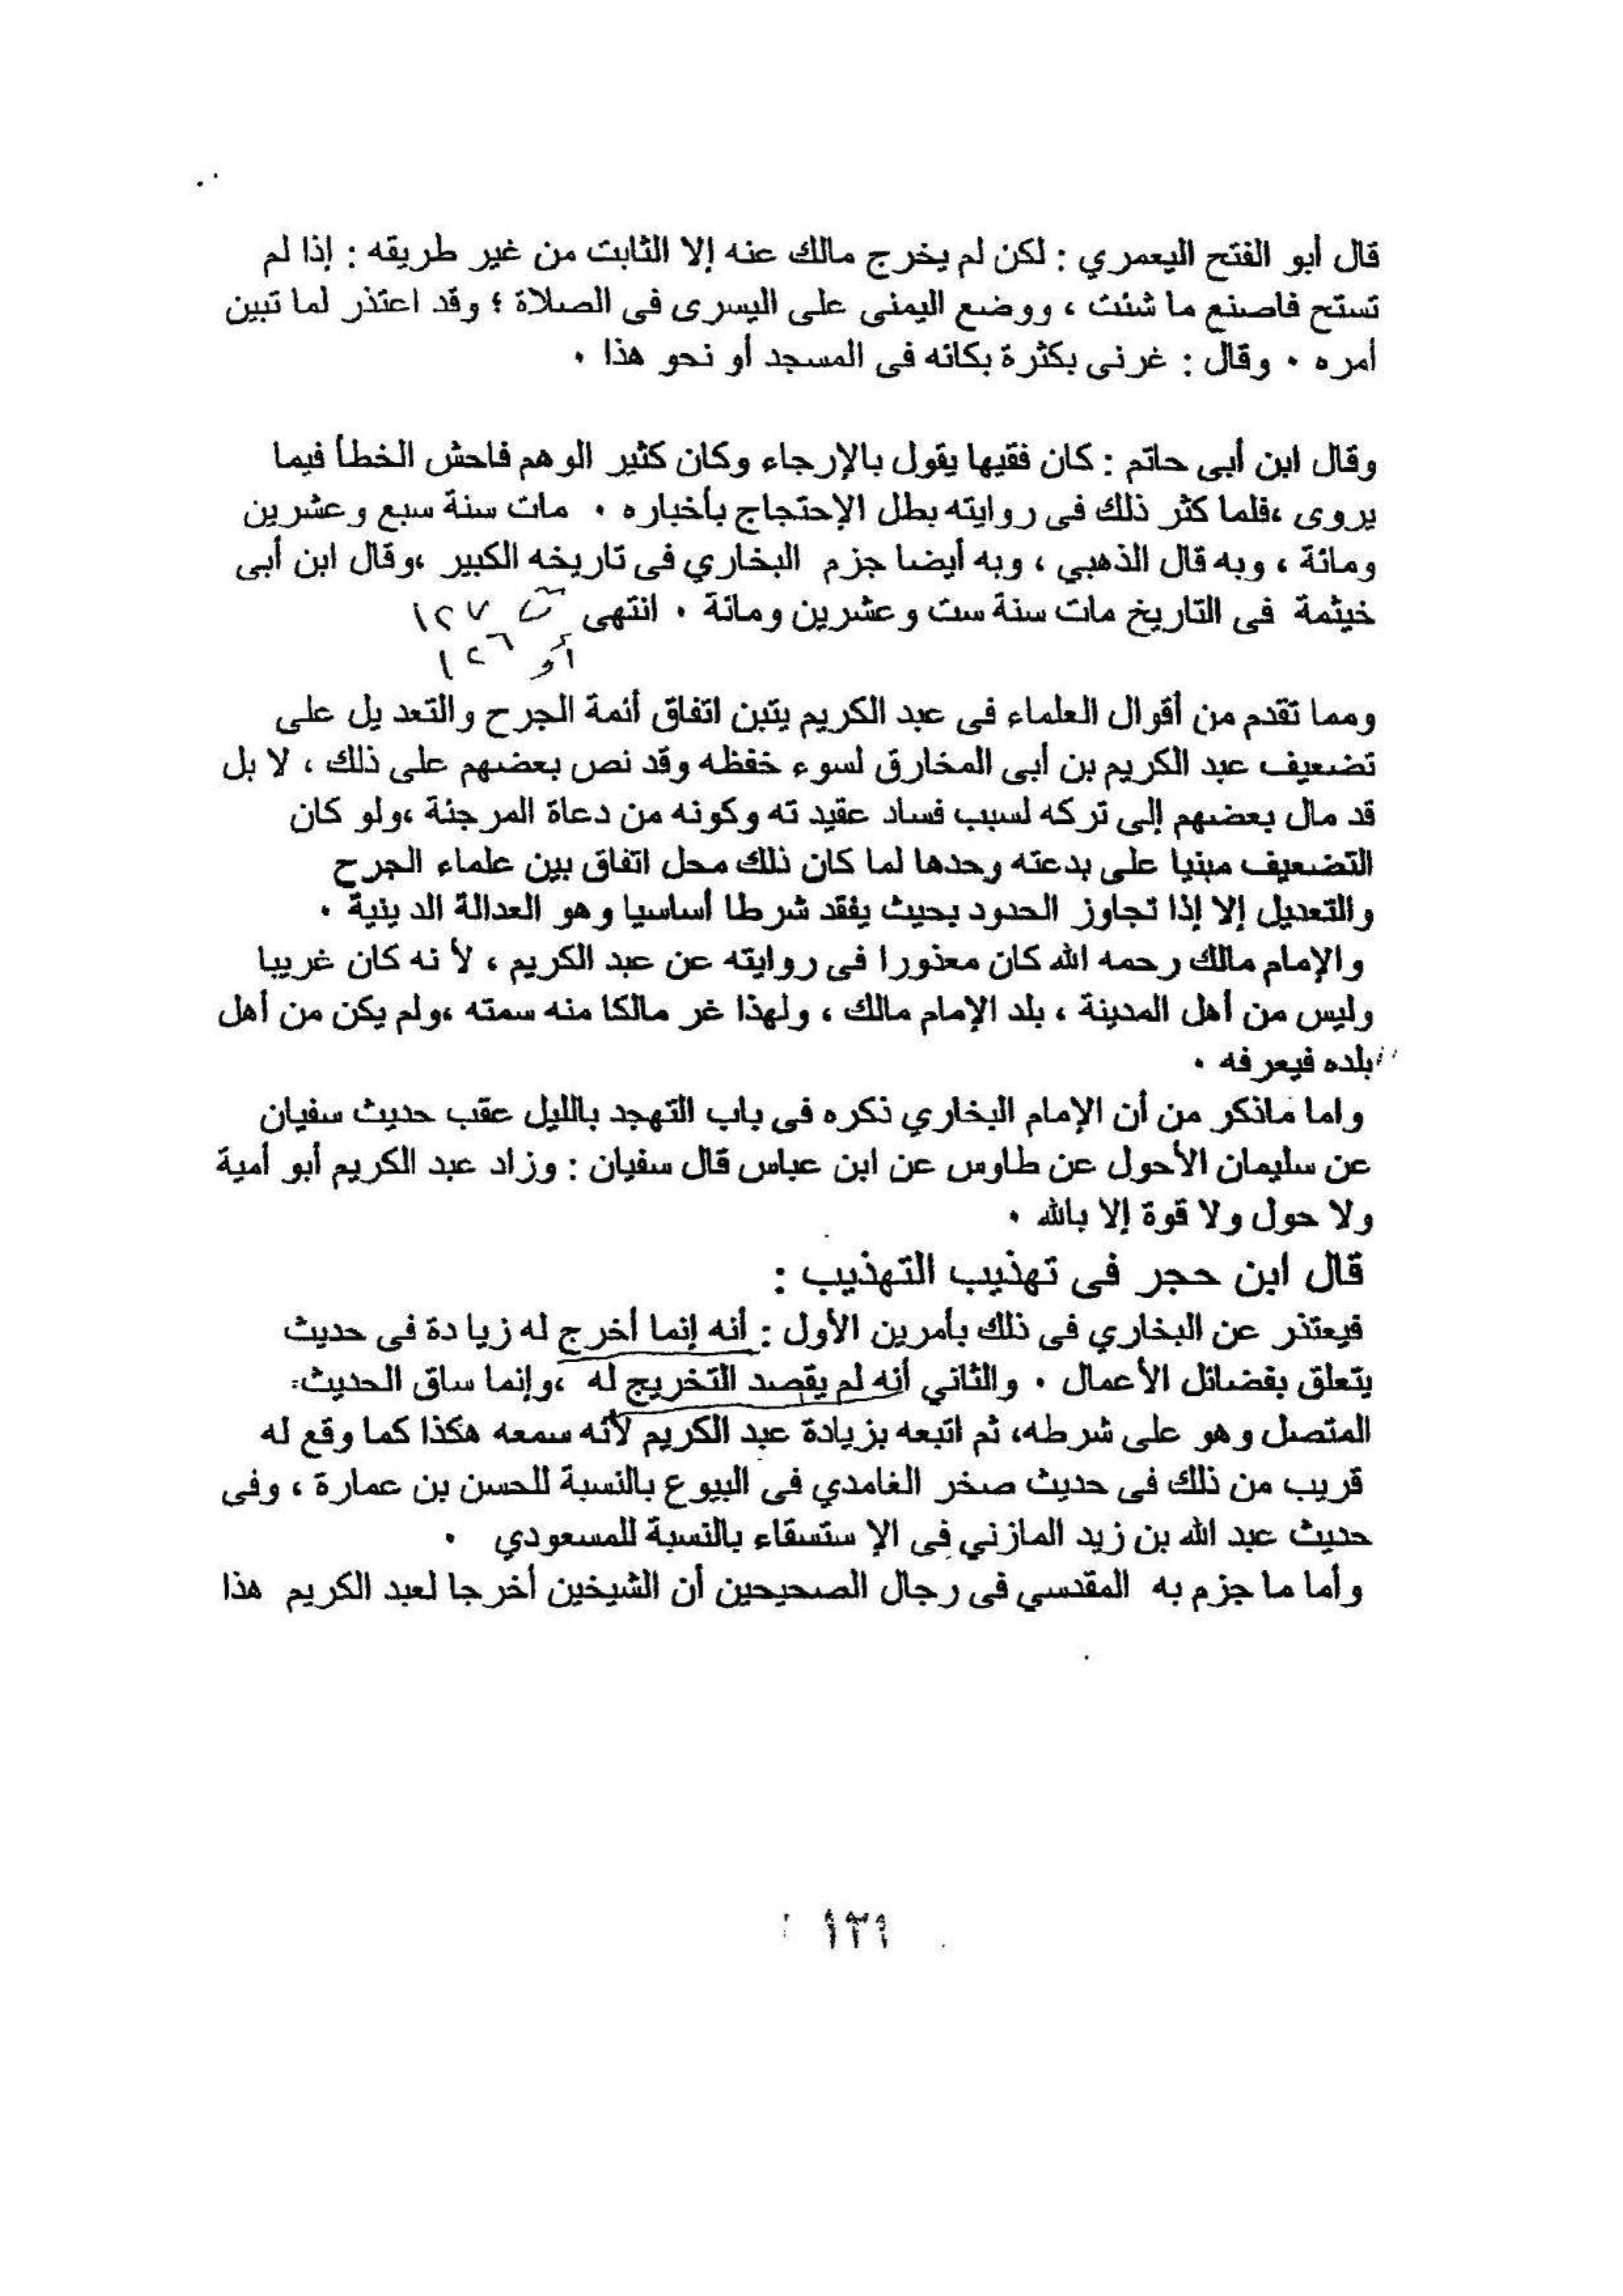 قال أبو الفتح اليعمري : لكن لم يخرج مالك عنه إلا الثابت من غير طريقه : إذا لم
تستح فاصنع ما شئت ، ووضع اليمنى على اليسرى فى الصلاة ؛ وقد اعتذر لما تبين
أمره ٠ وقال : غرنى بكثرة بكائه فى المسجد أو نحو هذا ٠
وقال ابن أبى حاتم : كان فقيها يقول بالإرجاء وكان كثير الوهم فاحش الخطأ فيما
يروى ،فلما كثر ذلك فى روايته بطل الإحتجاج بأخباره ٠ مات سنة سبع وعشرين
ومائة ، وبه قال الذهبي ، وبه أيضا جزم البخاري فى تاريخه الكبير ،وقال ابن أبى
خيثمة فى التاريخ مات سنة ست وعشرين ومائة ٠ انتهى ت ١٢٧
أو ١٢٦
ومما تقدم من أقوال العلماء فى عبد الكريم يتبن اتفاق أئمة الجرح والتعد يل على
تضعيف عبد الكريم بن أبى المخارق لسوء خفظه وقد نص بعضهم على ذلك ، لا بل
قد مال بعضهم إلى تركه لسبب فساد عقيد ته وكونه من دعاة المرجئة ،ولو كان
التضعيف مبنيا على بدعته وحدها لما كان ذلك محل اتفاق بين علماء الجرح
والتعديل إلا إذا تجاوز الحدود بحيث يفقد شرطا أساسيا وهو العدالة الد ينية ٠
والإمام مالك رحمه الله كان معذورا فى روايته عن عبد الكريم ، لأ نه كان غريبا
وليس من أهل المدينة ، بلد الإمام مالك ، ولهذا غر مالكا منه سمته ،ولم يكن من أهل
بلده فيعرفه ٠
واما ماذكر من أن الإمام البخاري ذكره فى باب التهجد بالليل عقب حديث سفيان
عن سليمان الأحول عن طاوس عن ابن عباس قال سفيان : وزاد عبد الكريم أبو أمية
ولا حول ولا قوة إلا بالله ٠
قال ابن حجر فى تهذيب التهذيب :
فيعتذر عن البخاري فى ذلك بأمرين الأول : أنه إنما أخرج له زيا دة فى حديث
يتعلق بفضائل الأعمال ٠ والثاني أنه لم يقصد التخريج له ،وإنما ساق الحديث
المتصل وهو على شرطه، ثم اتبعه بزيادة عبد الكريم لأنه سمعه هكذا كما وقع له
قريب من ذلك فى حديث صخر الغامدي فى البيوع بالنسبة للحسن بن عمارة ، وفى
حديث عبد الله بن زيد المازني فى الإ ستسقاء بالنسبة للمسعودي ٠
وأما ما جزم به المقدسي فى رجال الصحيحين أن الشيخين أخرجا لعبد الكريم هذا